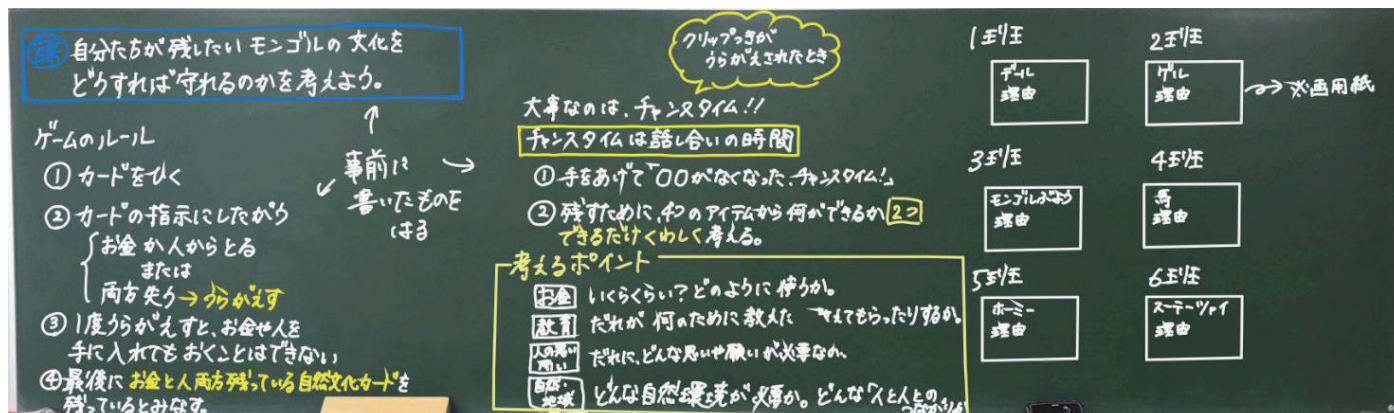 課 自分たちが残したいモンゴルの文化を
どうすれば守れるのかを考えよう。
ゲームのルール
① カードをひく
② カードの指示にしたがう
お金か人からとる
または
両方失う→うらがえす
③ 1度うらがえすと、お金や人を
手に入れてもおくことはできない
④ 最後にお金と人両方残っている自然文化カードを
残っているとみなす。
事前に
書いたものを
はる
クリップつきが
うらがえされたとき
大事なのは、チャンスタイム!!
チャンスタイムは話し合いの時間
① 手をあげて「〇〇がなくなった、チャンスタイム!」
② 残すために、4つのアイテムから何ができるか 2つ
できるだけくわしく考える。
考えるポイント
お金 いくらくらい?どのように使うか。
教育 だれが何のために教えた えてもらったりするか。
人の思い だれに、どんな思いや願いが必要なのか。
自然・地域 どんな自然環境が必要か。どんな人と人との
つながりが
1班
デール
理由
2班
ゲル
理由
→※画用紙
3班
モンゴルぶよう
理由
4班
馬
理由
5班
ホーミー
理由
6班
スーテーツァイ
理由